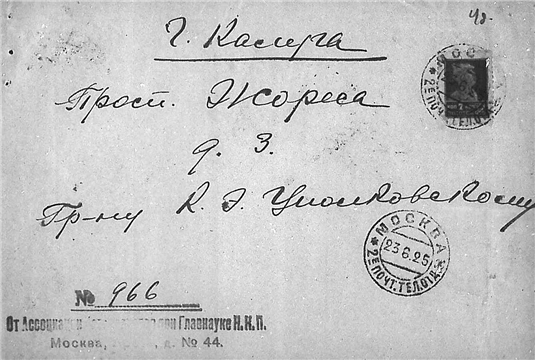 40.
г. Калуга
Просп. Жореса
д. 3.
Гр-ну К. Э. Циолковскому
МОСКВА
* 2Е ПОЧТ. ТЕЛ. ОТД. *
МОСКВА
23.6.25
* 2Е ПОЧТ. ТЕЛ. ОТД. *
№ 966
От Ассоциации при Главнауке Н. К. П.
Москва, д. № 44.